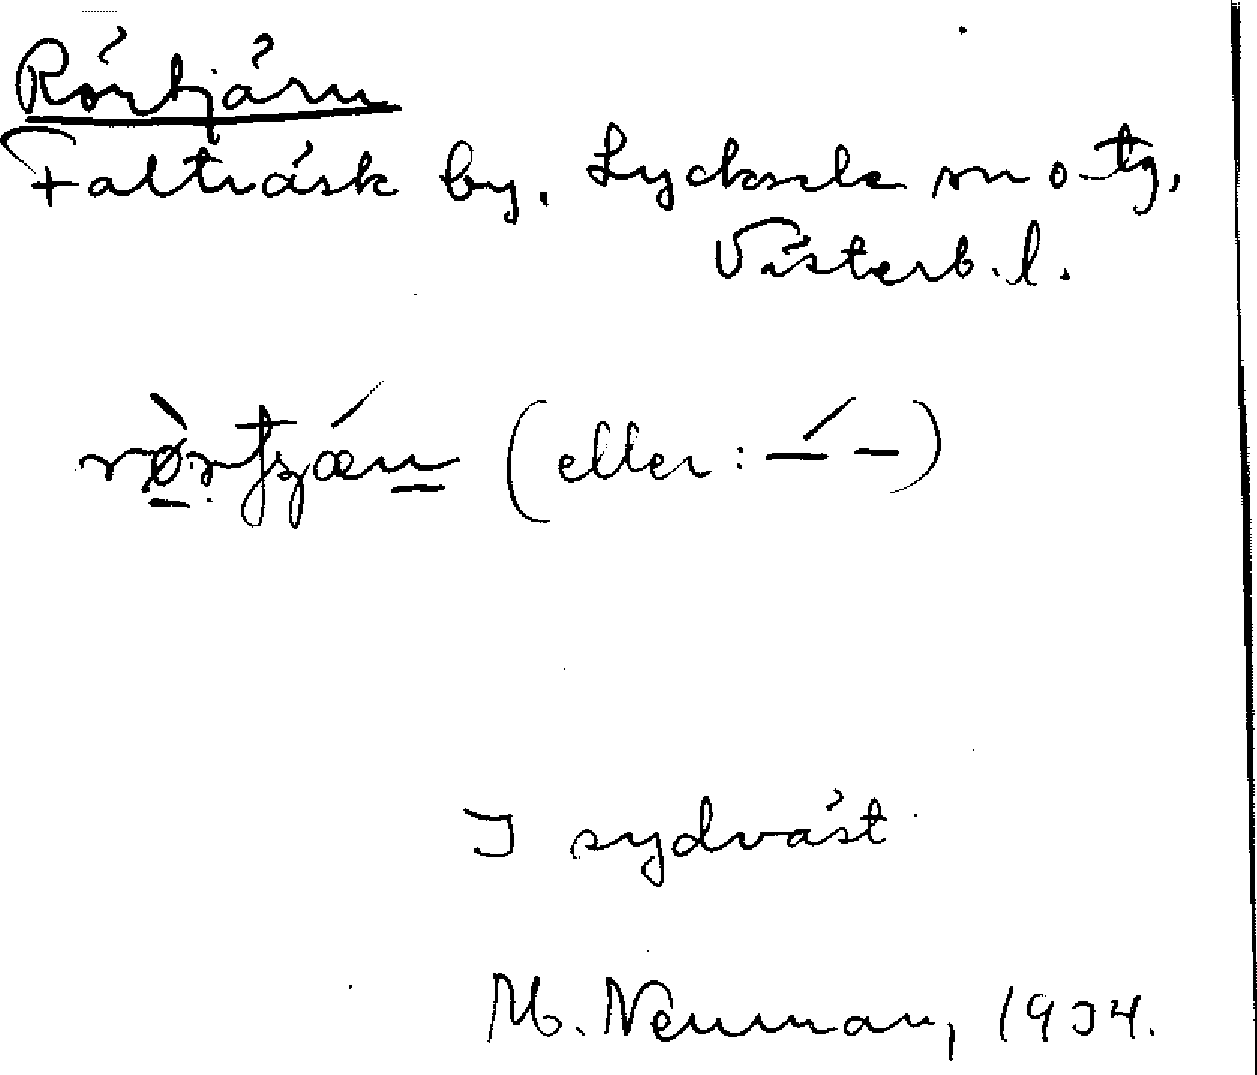 Rörtjärn
Falträsk by. Lycksele sn o. tg,
Västerb. l.
(eller: –́ –)
I sydväst
M. Neuman, 1934.